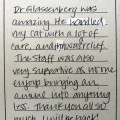 Dr Glassenberg was
amazing. He handled
my cat with a lot of
care, and was a relief.
The staff was also
very supportive as not me
enjoy bringing an
animal into anything
less. Thank you all so
much. I will be back!